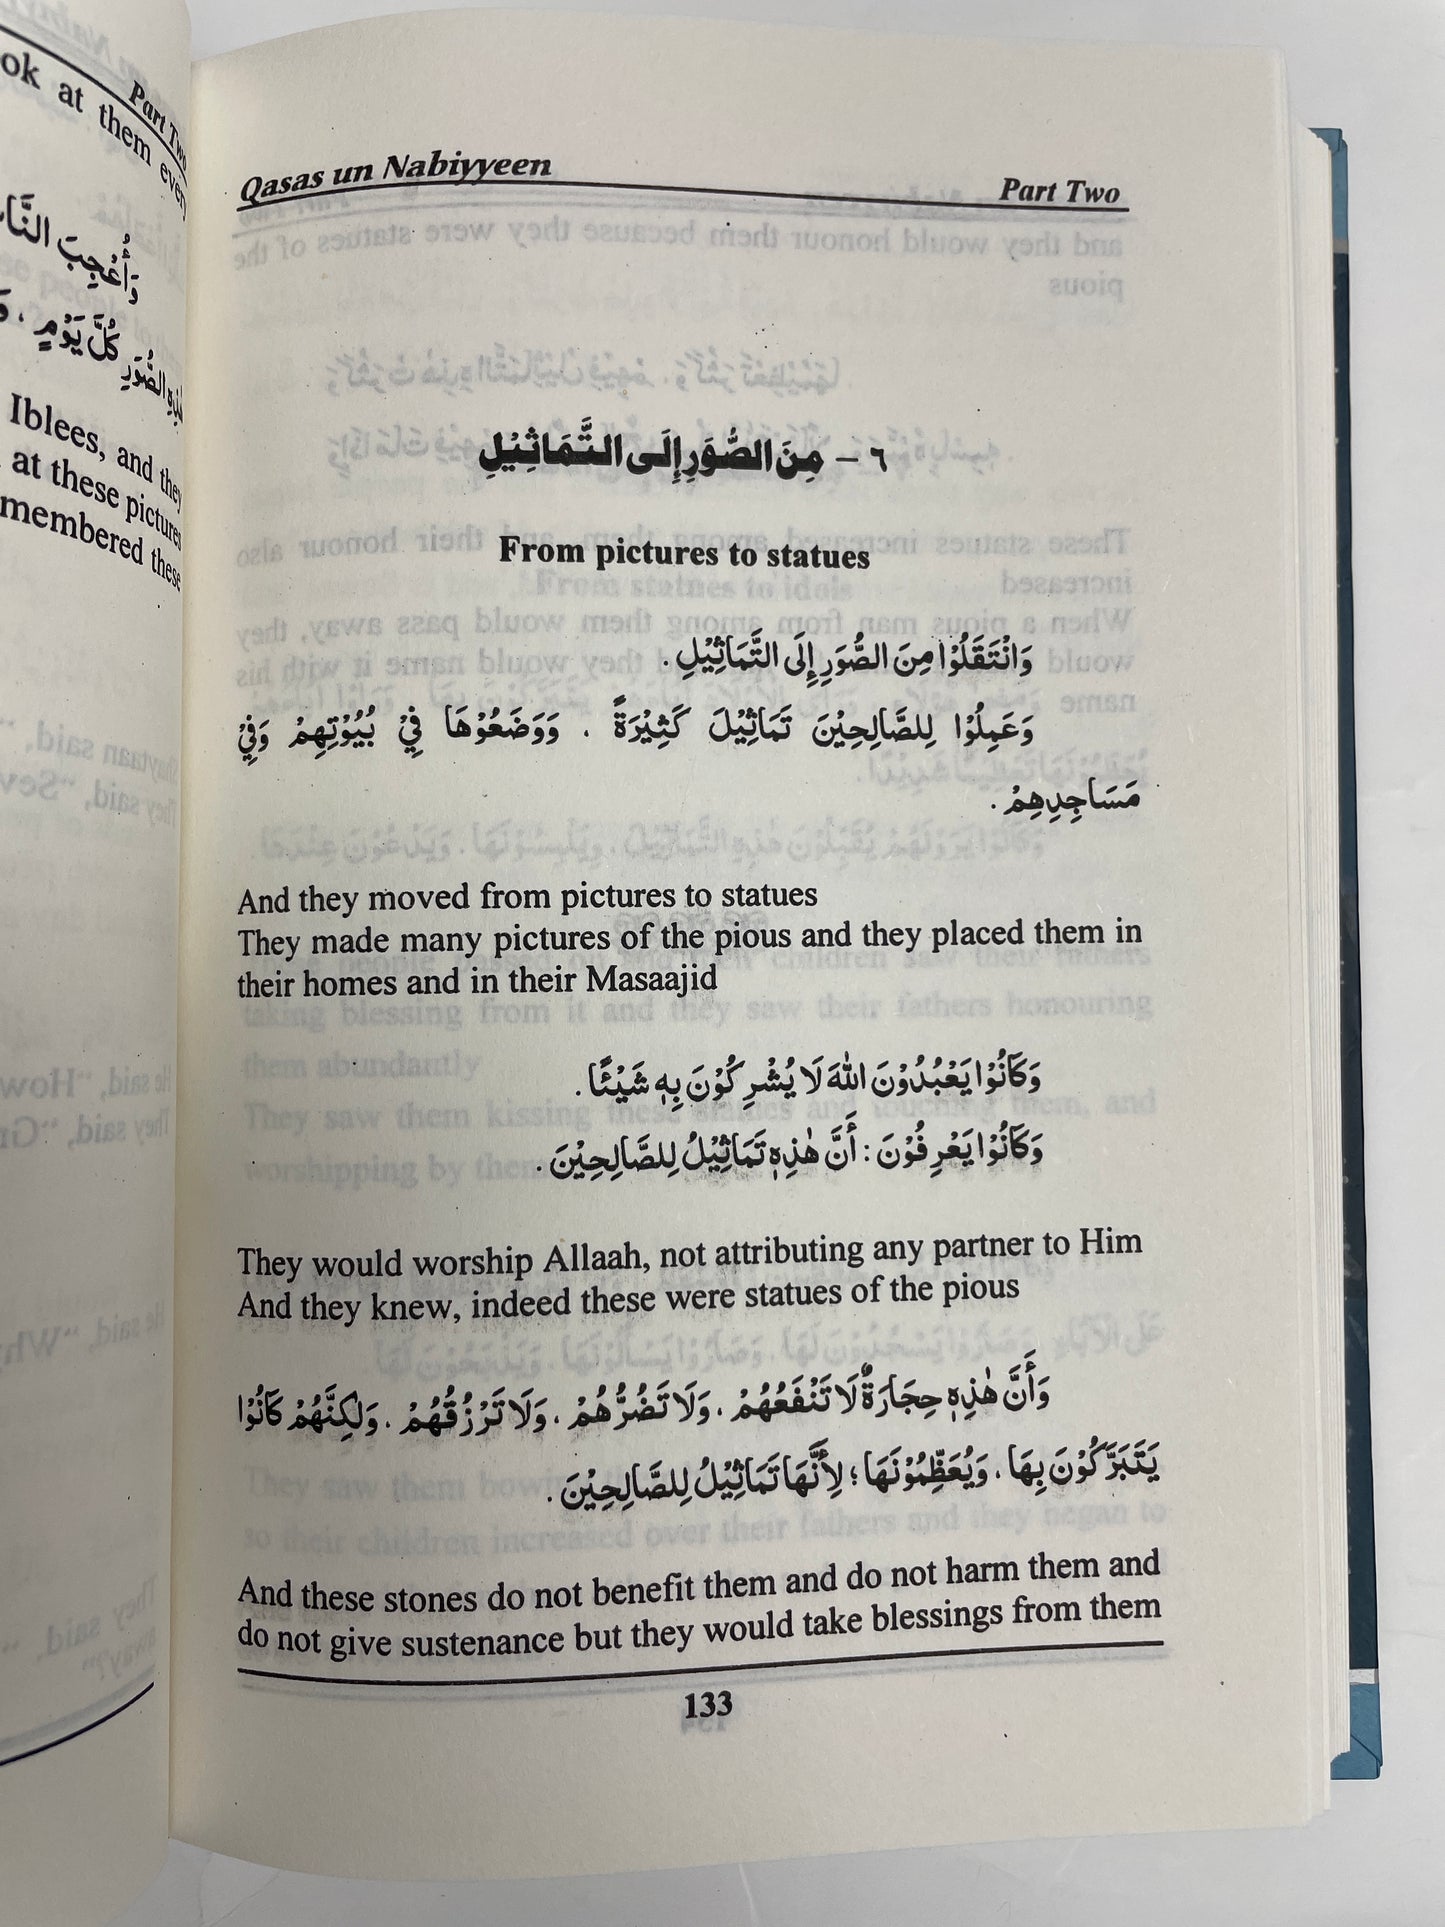 Part Two
ok at them even
وَأُعْجِبَ
كُلَّ يَوْمٍ ،
الصُّوَرِ
Iblees, and they
at these pictures
membered these
Qasas un Nabiyyeen
Part Two
٦ – مِنَ الصُّوَرِ إِلَى التَّمَاثِيْلِ
From pictures to statues
وَانْتَقَلُوْا مِنَ الصُّوَرِ إِلَى التَّمَاثِيْلِ .
وَعَمِلُوْا لِلصَّالِحِيْنَ تَمَاثِيْلَ كَثِيْرَةً . وَوَضَعُوْهَا فِيْ بُيُوْتِهِمْ وَفِيْ
مَسَاجِدِهِمْ .
And they moved from pictures to statues
They made many pictures of the pious and they placed them in
their homes and in their Masaajid
وَكَانُوْا يَعْبُدُوْنَ اللهَ لَا يُشْرِكُوْنَ بِهٖ شَيْئًا .
وَكَانُوْا يَعْرِفُوْنَ : أَنَّ هٰذِهٖ تَمَاثِيْلُ لِلصَّالِحِيْنَ .
They would worship Allaah, not attributing any partner to Him
And they knew, indeed these were statues of the pious
وَأَنَّ هٰذِهٖ حِجَارَةٌ لَا تَنْفَعُهُمْ ، وَلَا تَضُرُّهُمْ ، وَلَا تَرْزُقُهُمْ ، وَلٰكِنَّهُمْ كَانُوْا
يَتَبَرَّكُوْنَ بِهَا ، وَيُعَظِّمُوْنَهَا ؛ لِأَنَّهَا تَمَاثِيْلُ لِلصَّالِحِيْنَ .
And these stones do not benefit them and do not harm them and
do not give sustenance but they would take blessings from them
133